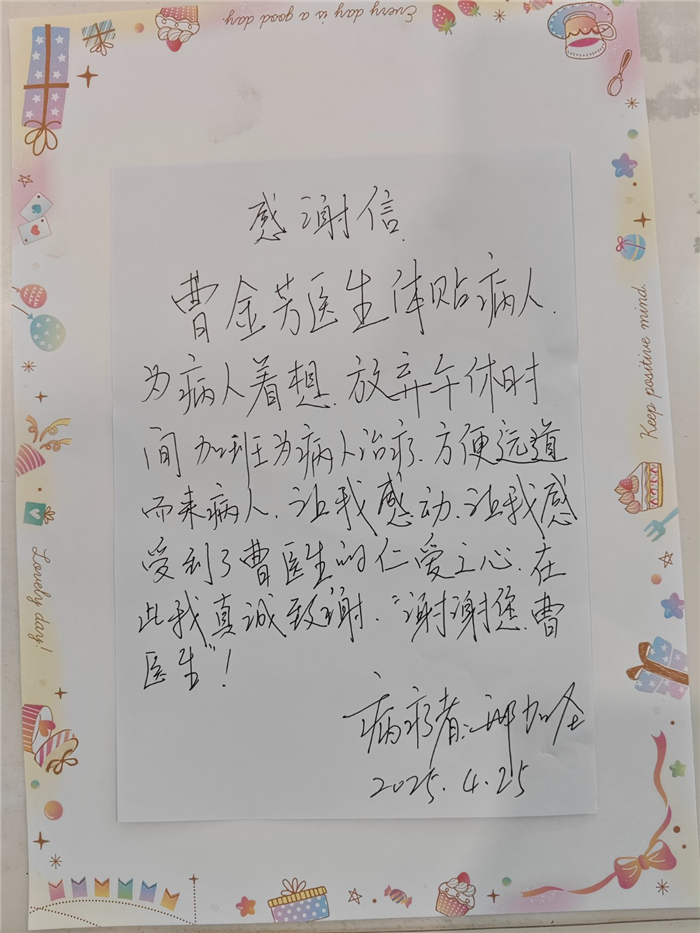 Every day is a good day.
感谢信.
曹金芳医生体贴病人.
为病人着想.放弃午休时
间加班为病人治疗.方便远道
而来病人.让我感动.让我感
受到了曹医生的仁爱之心.在
此我真诚致谢."谢谢您.曹
医生"!
病疗者:
2025.4.25
Keep positive mind.
Lovely day!
Keep positive mind.